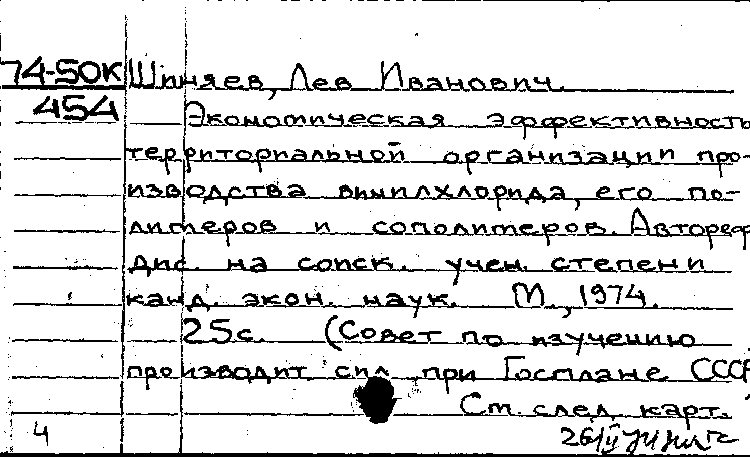 74-50К Шиняев, Лев Иванович.
454 Экономическая эффективность
территориальной организации про-
изводства винилхлорида, его по-
лимеров и сополимеров. Автореф
дис. на соиск. учен. степени
канд. экон. наук. М., 1974.
25с. (Совет по изучению
производит. сил при Госплане СССР
См. след. карт.
4 26/II